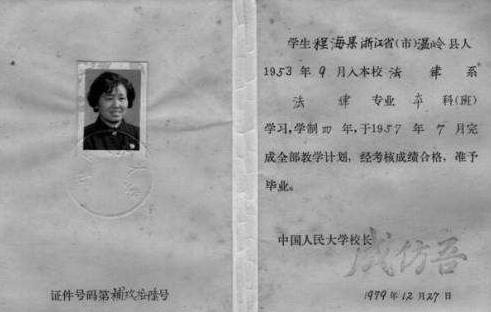 证件号码第補玖叁陸号
学生程海果浙江省(市)温岭县人
1953年9月入本校法律系
法律专业本科(班)
学习,学制四年,于1957年7月完
成全部教学计划,经考核成绩合格,准予
毕业。
中国人民大学校长
成仿吾
1979年12月27日